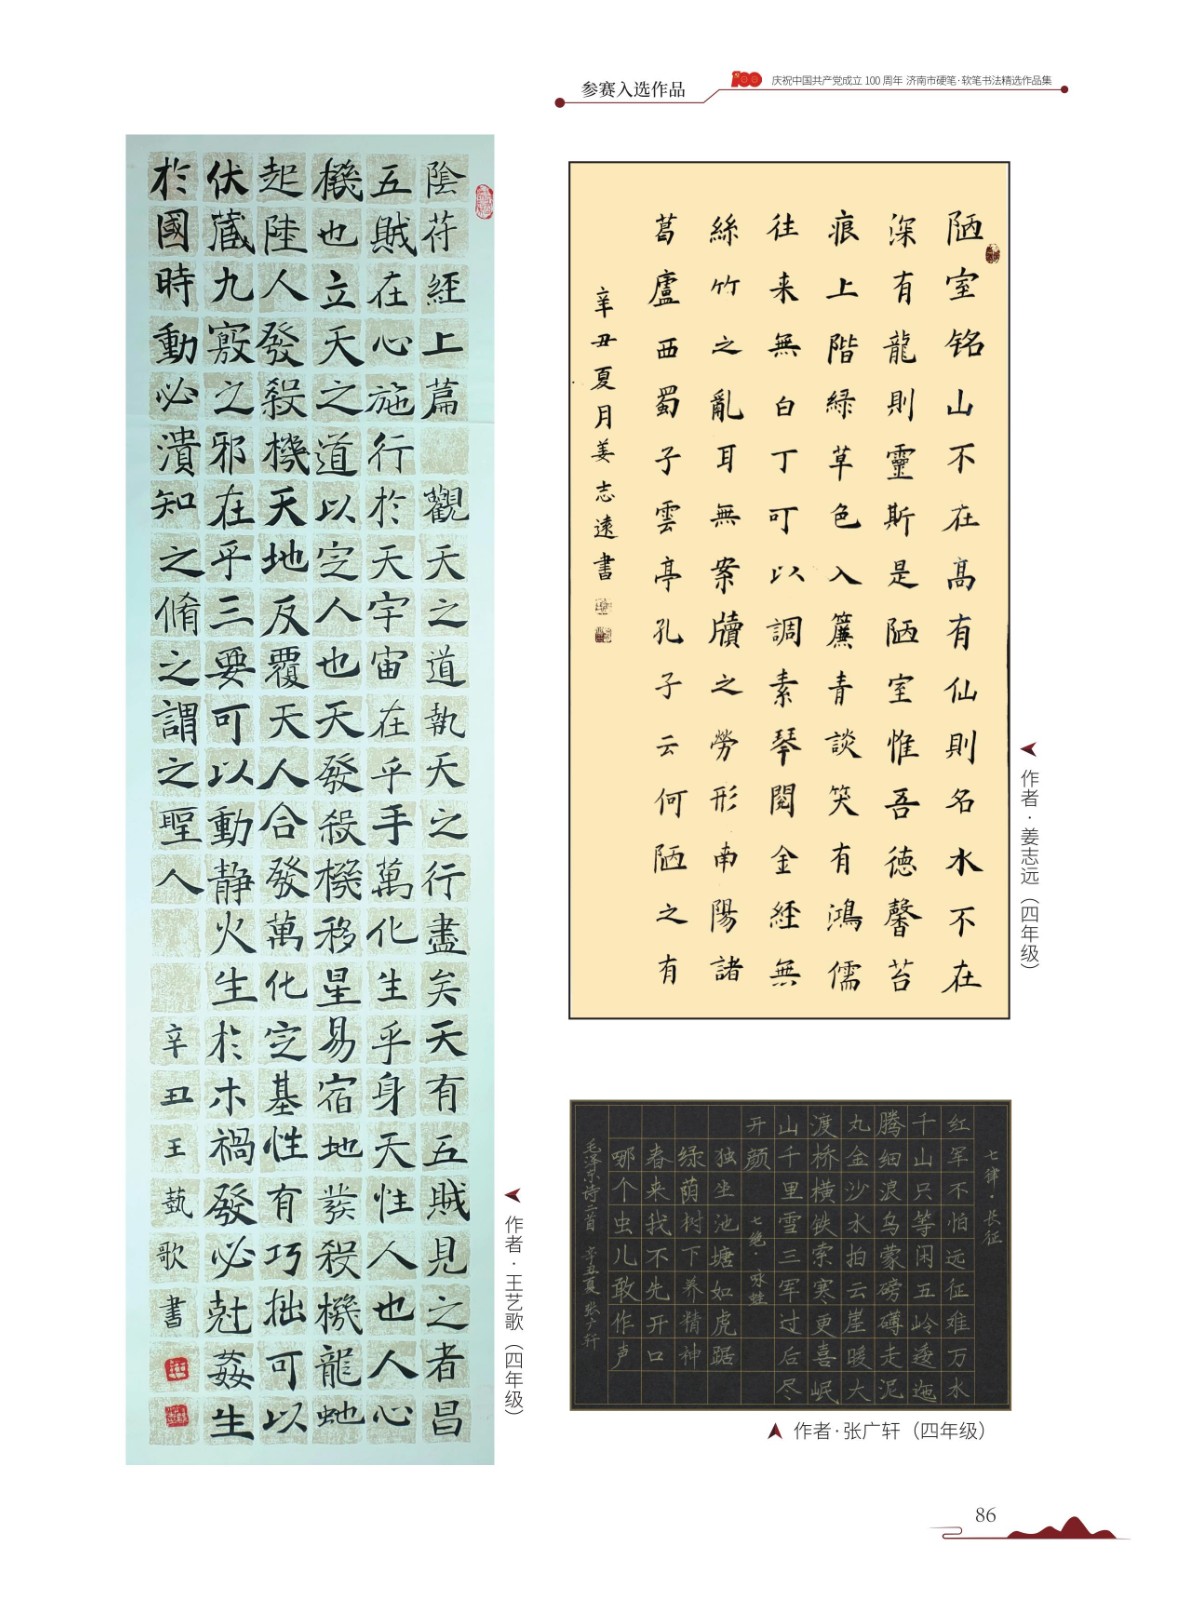 参赛入选作品
100 庆祝中国共产党成立 100 周年 济南市硬笔·软笔书法精选作品集
陰符經上篇 觀天之道執天之行盡矣天有五賊見之者昌
五賊在心施行於天宇宙在乎手萬化生乎身天性人也人心
機也立天之道以定人也天發殺機移星易宿地發殺機龍虵
起陸人發殺機天地反覆天人合發萬化定基性有巧拙可以
伏藏九竅之邪在乎三要可以動静火生於木禍發必尅姦生
於國時動必潰知之脩之謂之聖人
辛丑王藝歌書
作者·王艺歌（四年级）
陋室铭山不在高有仙則名水不在
深有龍則靈斯是陋室惟吾德馨苔
痕上階緑草色入簾青談笑有鴻儒
往来無白丁可以調素琴閲金経無
絲竹之亂耳無案牘之勞形南陽諸
葛廬西蜀子雲亭孔子云何陋之有
辛丑夏月姜志遠書
作者·姜志远（四年级）
七律·长征
红军不怕远征难万水
千山只等闲五岭逶迤
腾细浪乌蒙磅礴走泥
丸金沙水拍云崖暖大
渡桥横铁索寒更喜岷
山千里雪三军过后尽
开颜 七绝·咏蛙
独坐池塘如虎踞
绿荫树下养精神
春来我不先开口
哪个虫儿敢作声
毛泽东诗二首 辛丑夏 张广轩
作者·张广轩（四年级）
86